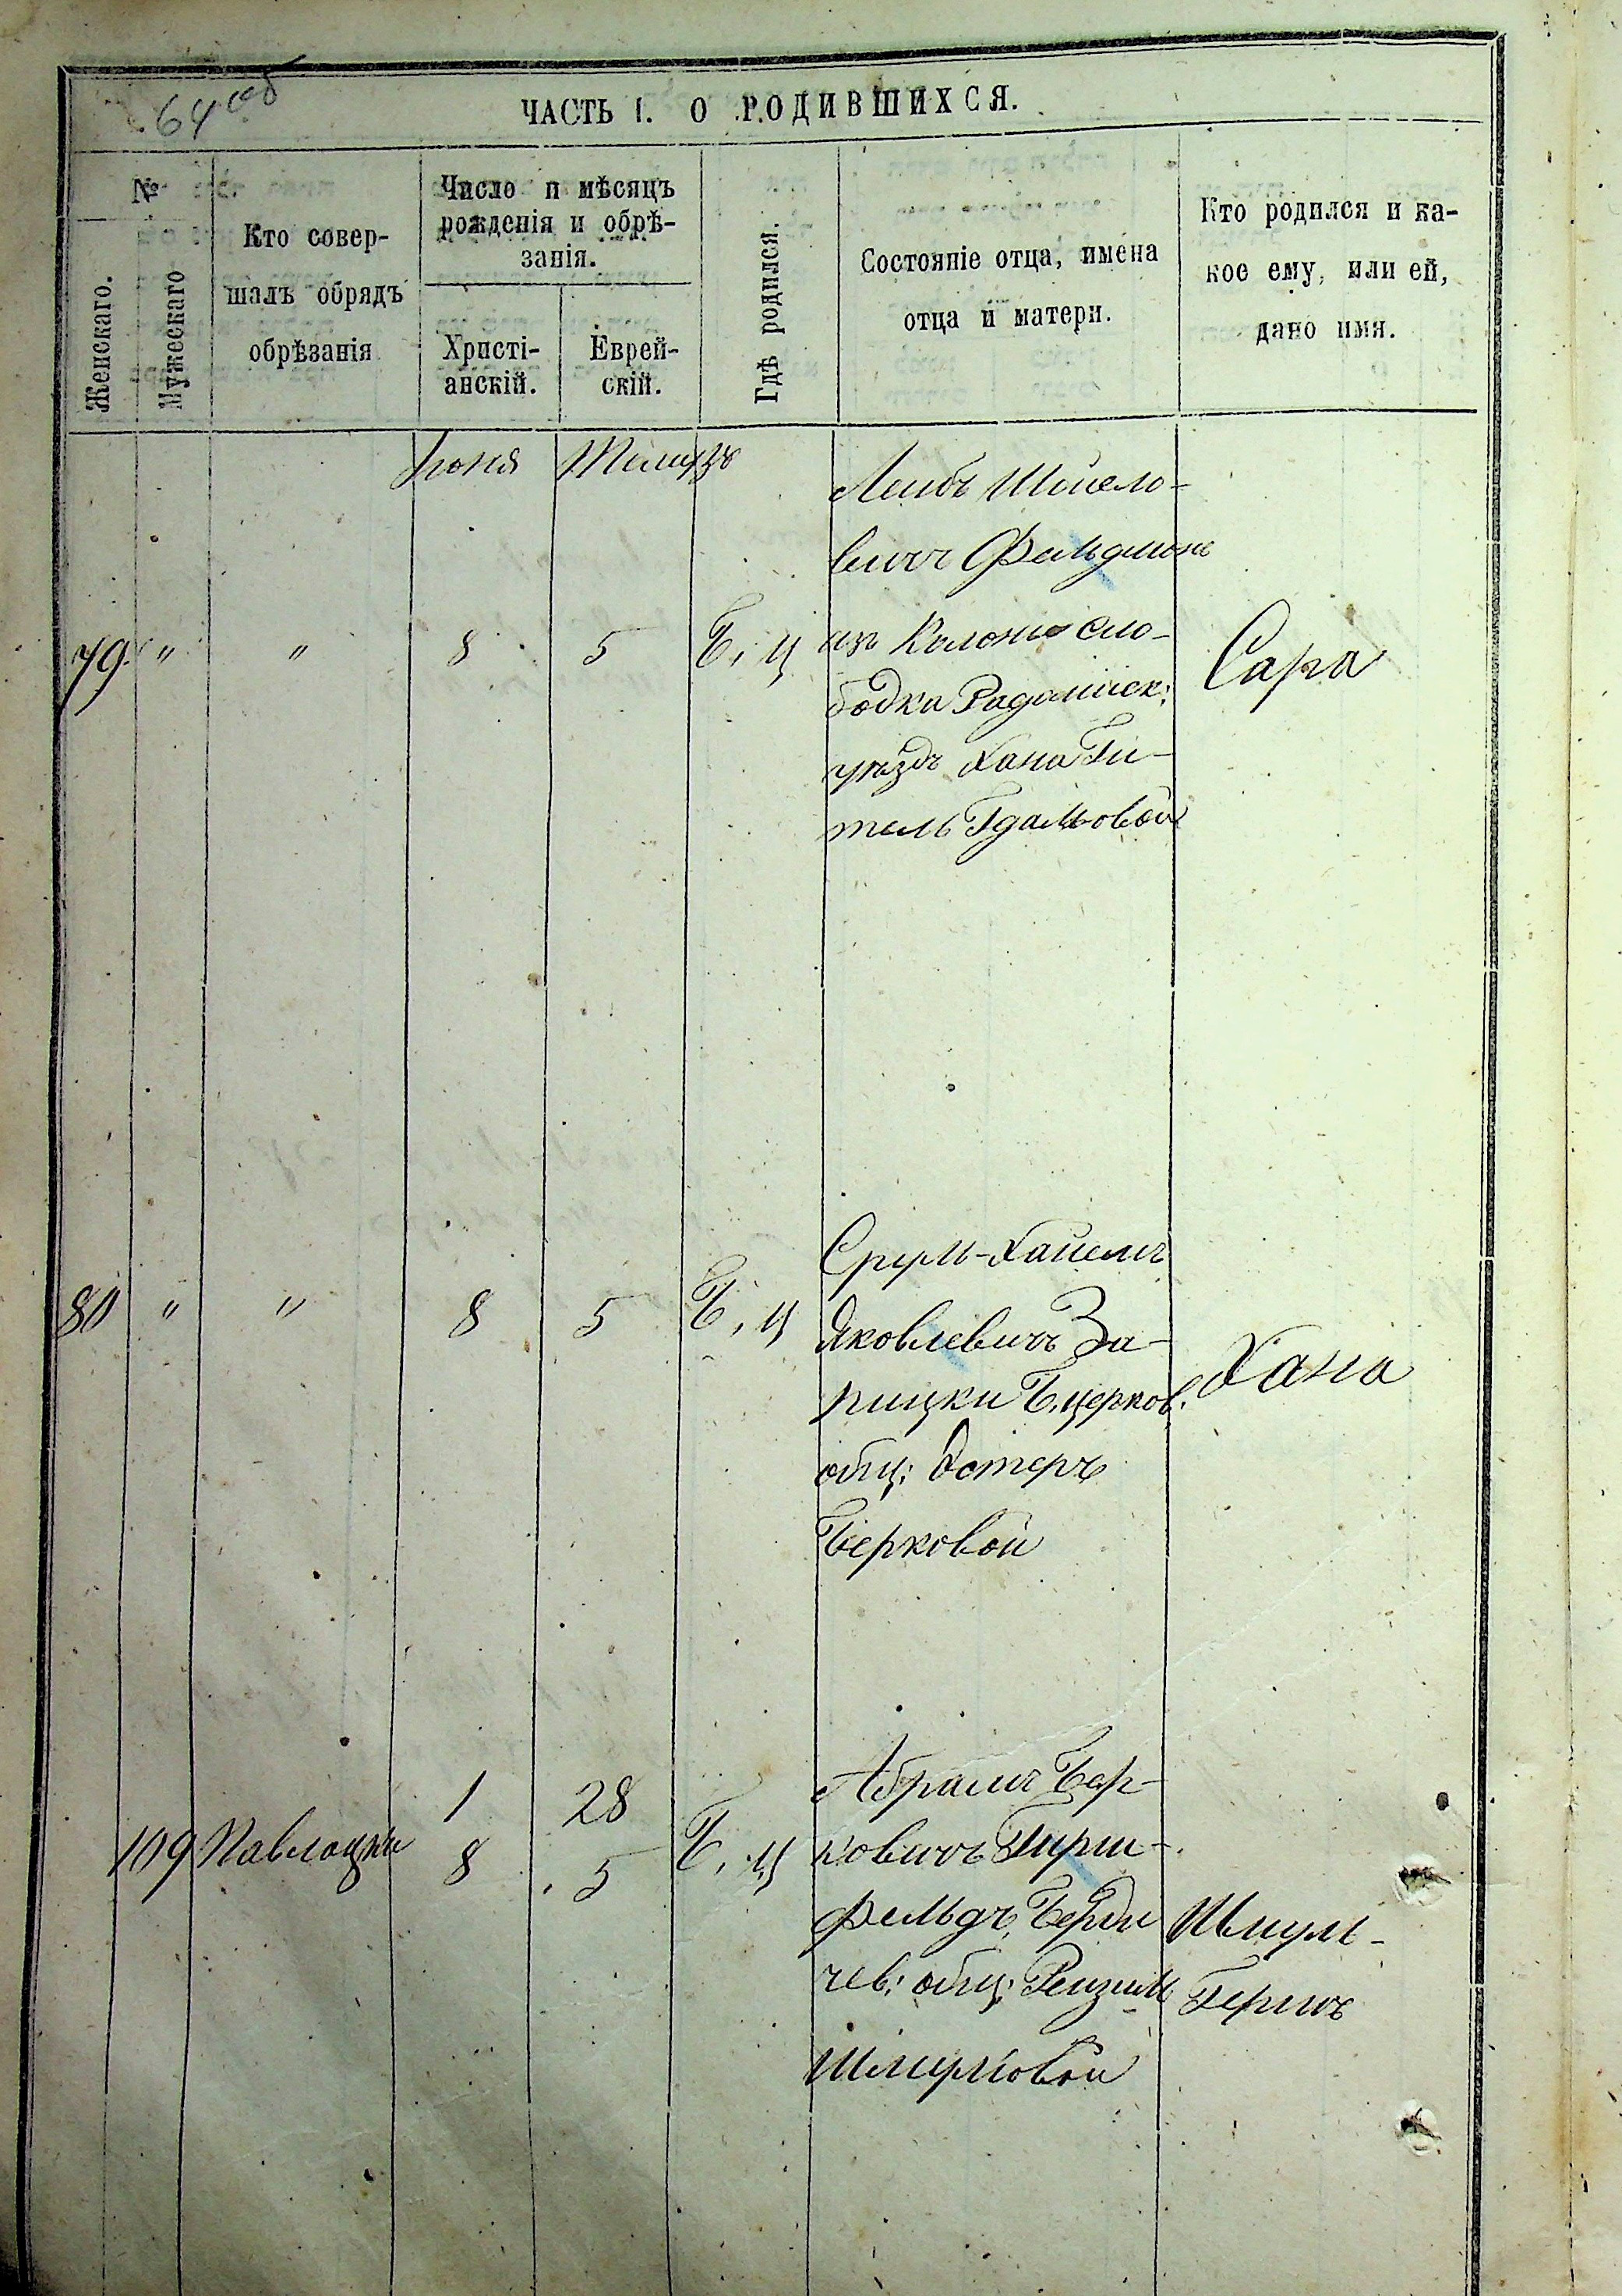 64 об
ЧАСТЬ I. О РОДИВШИХСЯ.
№
Женскаго.
Мужескаго
Кто совер-
шалъ обрядъ
обрѣзанія
Число и мѣсяцъ
рожденія и обрѣ-
занія.
Христі-
анскій.
Еврей-
скій.
Гдѣ родился.
Состояніе отца, имена
отца и матери.
Кто родился и ка-
кое ему, или ей,
дано имя.
Іюня
79 " " 8 5 Б, Ц
Лейбъ
вичъ Фельдманъ
изъ Колоніи Сло-
бодки Радомысск:
уѣздъ Хана Ги-
тель Гдальовой
Сара
80 " " 8 5 Б, Ц
Сруль-Хаимъ
Яковлевичъ За-
рицки Б, церков.
общ: Эстеръ
Берковой
Хана
109 Павлоцки 1 28 Б, Ц
8 5
Абрамъ Бер-
ковичъ Гирш-
фельдъ, Берди
чев: общ: Рейзи
Шмулiовой
Шмуль-
Гершъ